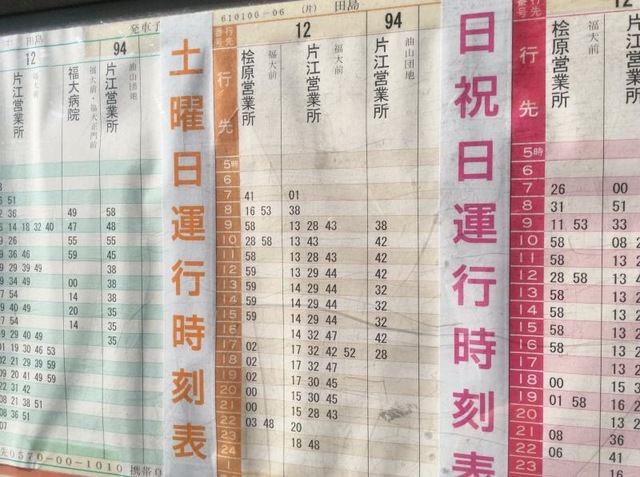 田島
発車
12
94
片江営業所
福大病院
福大前・福大正門前
片江営業所
油山団地
51
36 49 58
14 18 32 40 47 48
26 55 55
36 46 59 45
29 39 49 38
34 49 00 38
54 14 38
40 49 20 35
54 14 35
29 40 49 35
01 19 30 46 53
02 21 29 39 59
09 20 41 49 59
22 31 42
08 21 38 51
08 36 51
07
先0570-00-1010 携帯0
土曜日運行時刻表
610100-06 (片) 田島
番号 行先
12
94
行先
桧原営業所
福大前
片江営業所
福大前
片江営業所
油山団地
5時
6
7 41 01
8 16 53 38
9 58 13 28 43 38
10 28 58 13 43 42
11 58 13 28 43 42
12 59 13 29 44 42
13 59 13 29 44 32
14 59 14 29 44 32
15 59 14 29 44 32
16 14 32 47 42
17 02 17 32 42 52 28
18 02 17 32 45
19 02 17 30 45
20 00 15 30 45
21 00 15 28 43
22 03 48 20
23 18 48
24
1
日祝日運行時刻表
番号 行先
12
行先
桧原営業所
福大前
片江営業所
5時
6
7 26 00
8 31 51
9 11 53 33
10 58 08 2
11 58 13 2
12 28 58 13 4
13 58 13 2
14 58 13 2
15 58 13 2
16 58 13 2
17 13 2
18 00 15 3
19 01 58 16 2
20 13 2
21 08 36
22 06 41
23